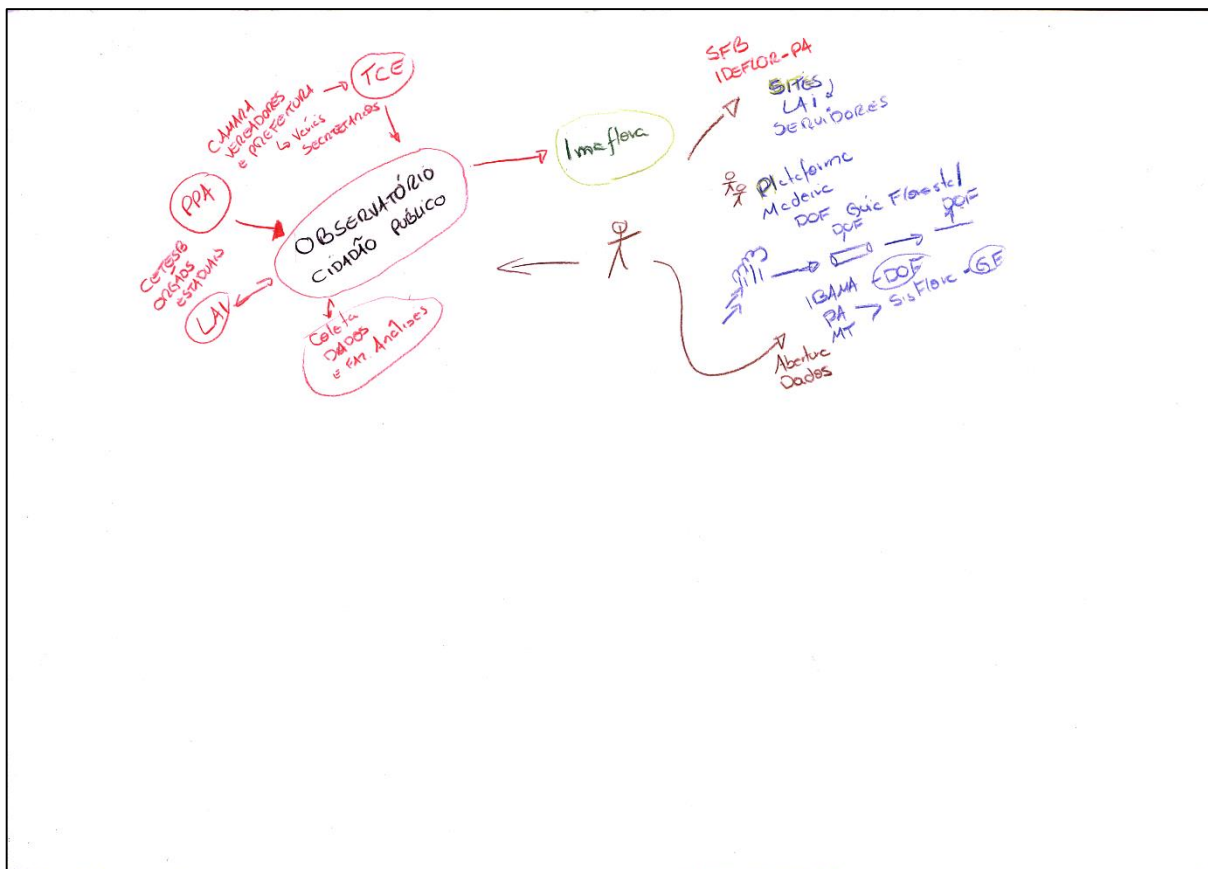 CÂMARA
VEREADORES
e PREFEITURA
↳ Várias
SECRETARIAS
TCE
PPA
CETESB
ORGÃOS
ESTADUAIS
LAI
OBSERVATÓRIO
CIDADÃO PÚBLICO
Coleta
DADOS
e FAZ. Análises
Imaflora
SFB
IDEFLOR-PA
SITES
LAI
SERVIDORES
Plataforma
Madeira
DOF Guia Florestal
DOF
DOF
IBAMA - DOF
PA
MT
SisFlora - GF
Abertura
Dados